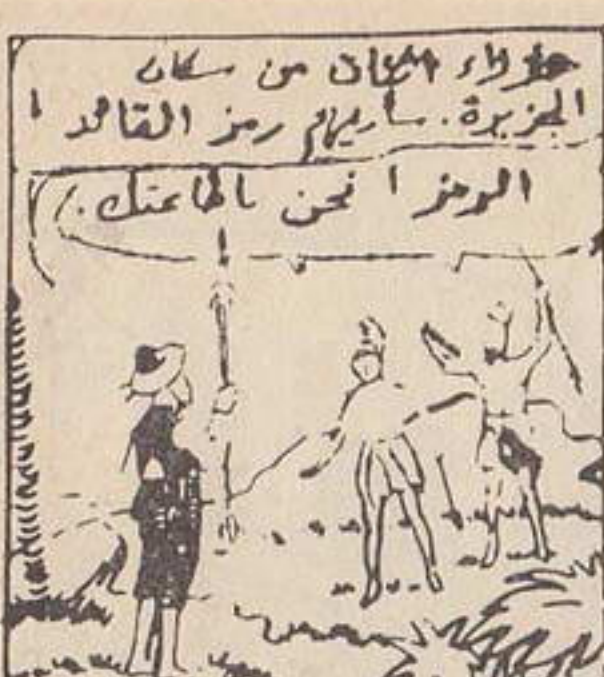 هؤلاء من سكان
الجزيرة. ساريهم رمز القائد !
الرمز ! نحن باطاعتك.